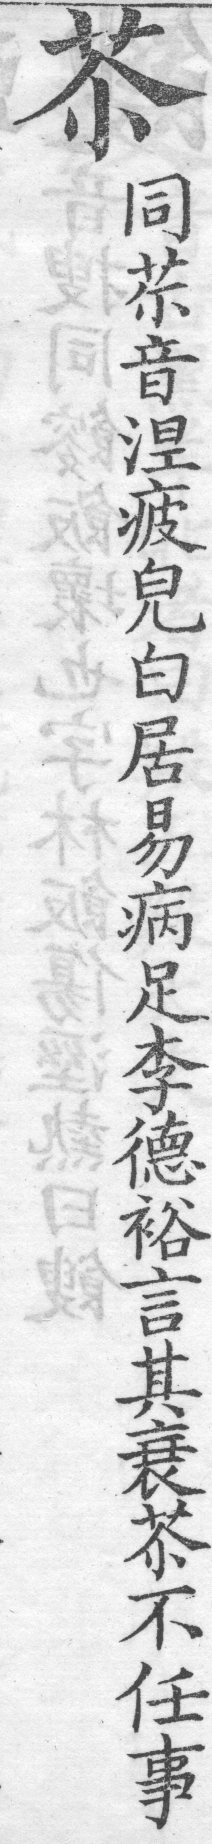 苶
同苶音湼疲皃白居易病足李德裕言其衰苶不任事